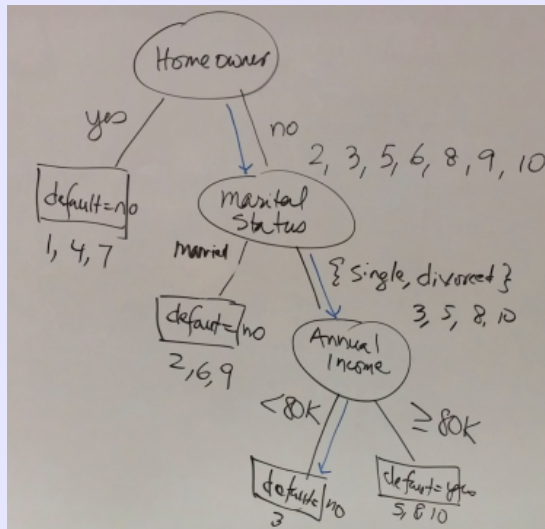 Homeowner
yes
no
2, 3, 5, 6, 8, 9, 10
default=no
1, 4, 7
Marital
Status
Married
{single, divorced}
3, 5, 8, 10
defaut=no
2, 6, 9
Annual
Income
<80K
≥80K
default=no
3
default=yes
5, 8 10